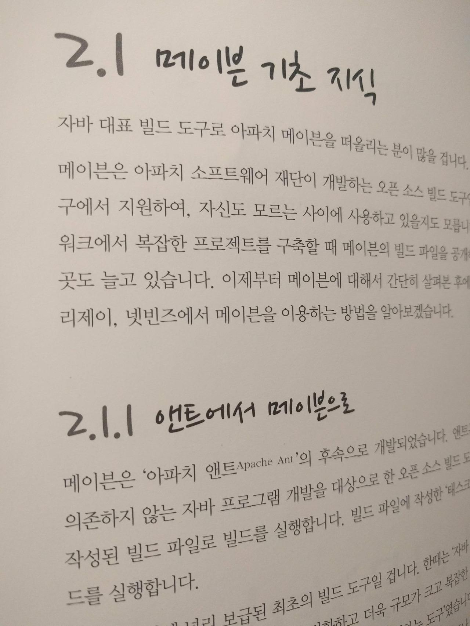 2.1 메이븐 기초 지식
자바 대표 빌드 도구로 아파치 메이븐을 떠올리는 분이 많을 겁니다.
메이븐은 아파치 소프트웨어 재단이 개발하는 오픈 소스 빌드
구에서 지원하여, 자신도 모르는 사이에 사용하고 있을지도
워크에서 복잡한 프로젝트를 구축할 때 메이븐의 빌드 파일을
곳도 늘고 있습니다. 이제부터 메이븐에 대해서 간단히 살펴본
리제이, 넷빈즈에서 메이븐을 이용하는 방법을 알아보겠습니다.
2.1.1 앤트에서 메이븐으로
메이븐은 ‘아파치 앤트Apache Ant’의 후속으로 개발되었습니다.
의존하지 않는 자바 프로그램 개발을 대상으로 한 오픈 소스 빌드
작성된 빌드 파일로 빌드를 실행합니다. 빌드 파일에 작성한
드를 실행합니다.
널리 보급된 최초의 빌드 도구일 겁니다. 한때는
더욱 규모가 크고 복잡한